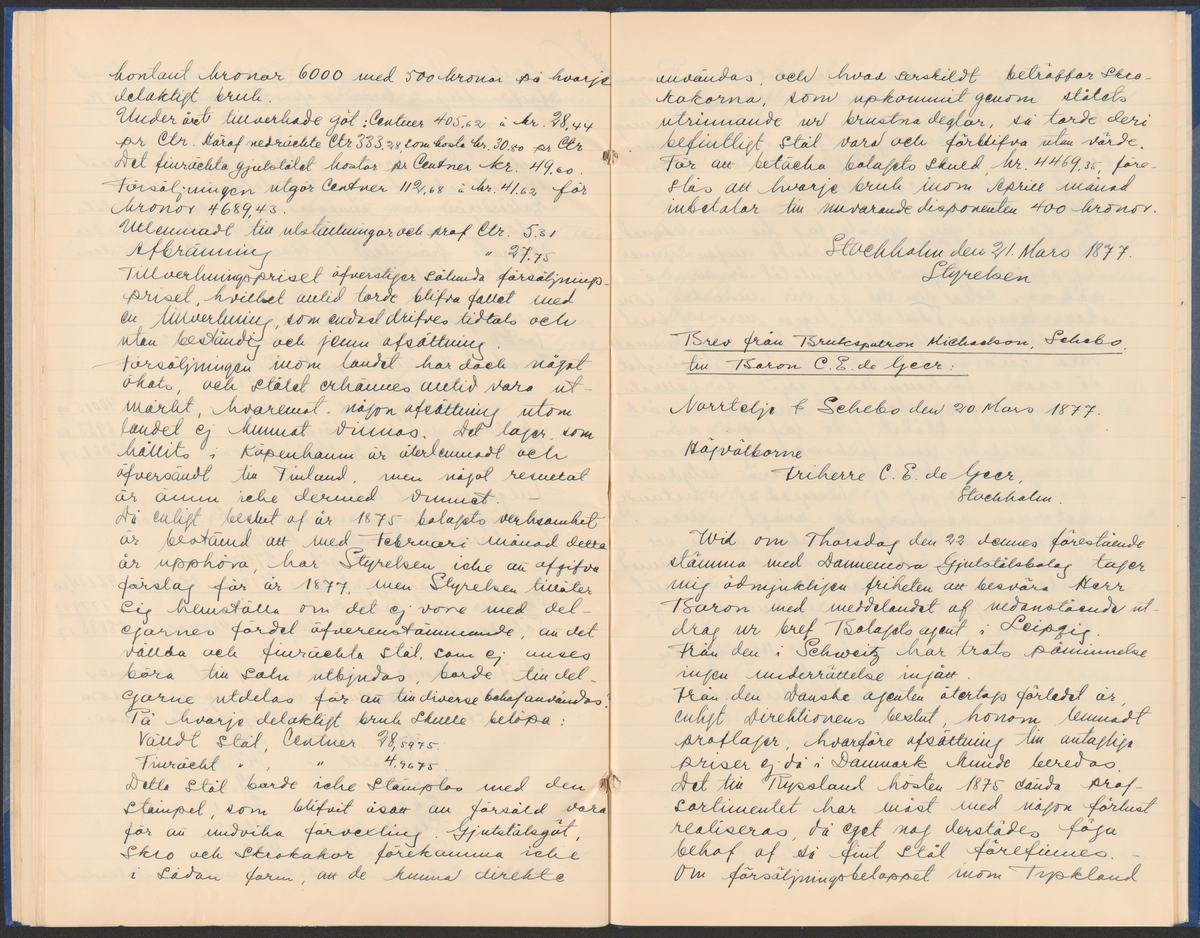 kontant kronor 6000 med 500 kronor på hvarje
delaktigt bruk.
Under året tillverkade göt: Centner 405,62 à kr. 28,44
pr Ctr. Häraf nedräckte Ctr 333,28, som kosta kr. 30.80 pr Ctr
Det finräckta gjutstålet kostar pr Centner kr. 49,60.
Försäljningen utgör Centner 112,68 à kr. 41.62 för
kronor 4689,43.
Utlemnadt till utställningar och prof Ctr. 5.31
Afbränning " 27.75
Tillverkningspriset öfverstiger sålunda försäljnings-
priset, hvilket alltid torde blifva fallet med
en tillverkning, som endast drifves tidtals och
utan beständig och jemn afsättning.
Försäljningen inom landet har dock något
ökats, och stålet erkännes alltid vara ut-
märkt, hvaremot någon afsättning utom
landet ej kunnat vinnas. Det lager, som
hållits i Köpenhamn är återlemnadt och
öfversändt till Finland, men något resultat
är ännu icke dermed vunnet. —
Då enligt beslut af år 1875 bolagets verksamhet
är bestämd att med Februari månad detta
år upphöra, har Styrelsen icke att afgifva
förslag för år 1877, men Styrelsen tillåter
sig hemställa om det ej vore med del-
egarnes fördel öfverensstämmande, att det
vällda och finräckta stål, som ej anses
böra till salu utbjudas, borde till del-
egarne utdelas för att till diverse behof användas?
På hvarje delaktigt bruk skulle belöpa:
Välldt stål, Centner 28,5975
Finräckt " , " 4.9675
Detta stål borde icke stämplas med den
stämpel, som blifvit åsatt att försäld vara
för att undvika förvexling. Gjutstålsgöt,
Skro och Skrokakor förekomma icke
i sådan form, att de kunna direkte
användas, och hvad serskildt beträffar skro-
kakorna, som uppkommit genom stålets
utrinnande ur brustna deglar, så torde deri
befintligt stål vara och förblifva utan värde.
För att betäcka bolagets skuld, kr. 4469,35, före-
slås att hvarje bruk inom April månad
inbetalar till nuvarande disponenten 400 kronor.
Stockholm den 21 Mars 1877.
Styrelsen
Brev från Brukspatron Michaelson, Schebo,
till Baron C.E. de Geer:
Norrtelje & Schebo den 20 Mars 1877.
Högvälborne
Friherre C. E. de Geer,
Stockholm.
Wid om Thorsdag den 22 dennes förestående
stämma med Dannemora Gjutstålsbolag tager
mig ödmjukligen friheten att besvära Herr
Baron med meddelandet af nedanstående ut-
drag ur bref Bolagets agent i Leipzig.
Från den i Schweitz har trots påminnelse
ingen underrättelse ingått.
Från den Danske agenten återtogs förledet år,
enligt Direktionens beslut, honom lemnadt
proflager, hvarföre afsättning till antagliga
priser ej då i Danmark kunde beredas.
Det till Ryssland hösten 1875 sända prof-
sortimentet har måst med någon förlust
realiseras, då eget nog derstädes föga
behof af så fint stål förefinnes. —
Om försäljningsbeloppet inom Tyskland